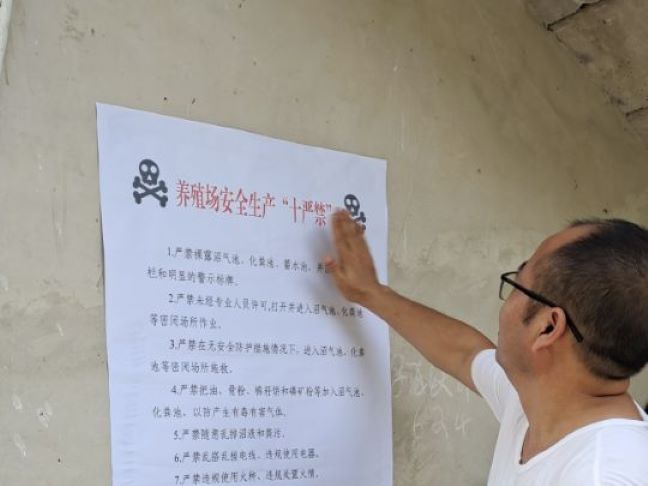 养殖场安全生产“十严禁”
1.严禁裸露沼气池、化粪池、蓄水池、
栏和明显的警示标牌。
2.严禁未经专业人员许可,打开并进入沼气池、化粪池
等密闭场所作业。
3.严禁在无安全防护措施情况下,进入沼气池、化粪
池等密闭场所施救。
4.严禁把油、骨粉、棉籽饼和磷矿粉等加入沼气池、
化粪池,以防产生有毒有害气体。
5.严禁随意乱排沼液和粪污。
6.严禁乱搭乱接电线、违规使用电器。
7.严禁违规使用火种、违规处置火情。
624